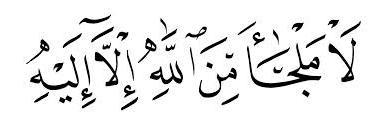 لَا مَلْجَأَ مِّنَ ٱللَّهِ إِلَّآ إِلَيْهِ